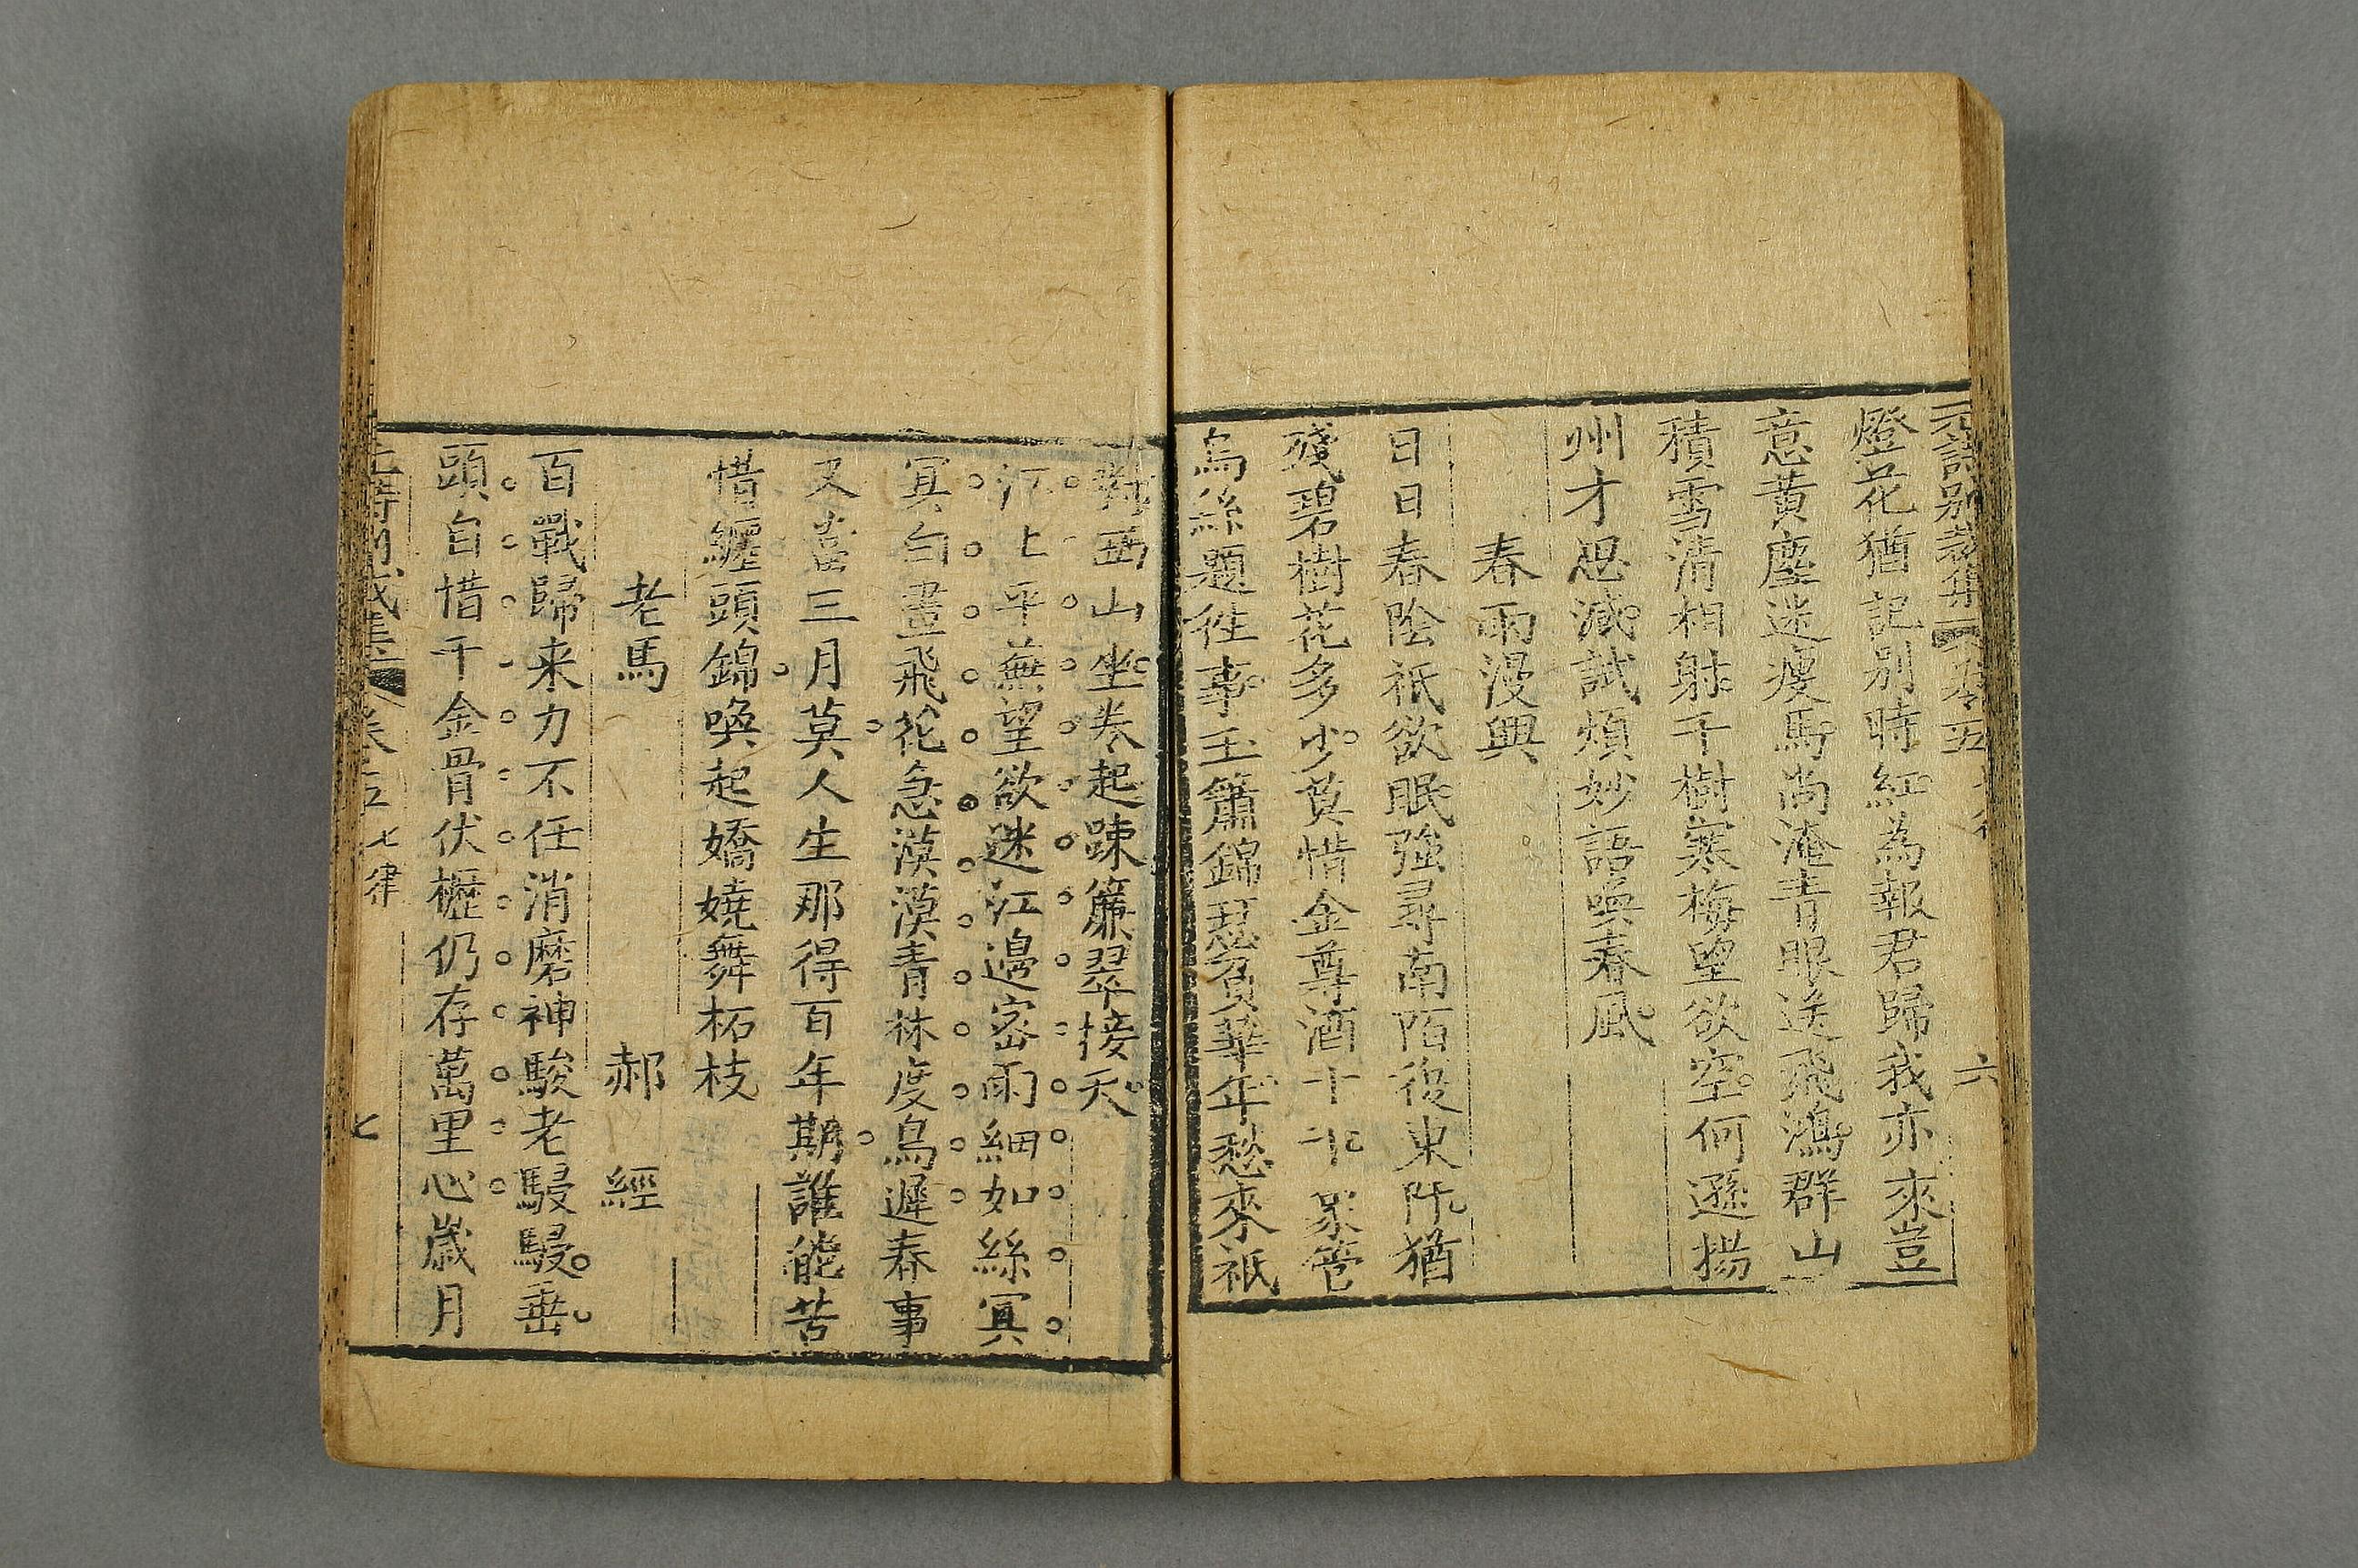 元詩別裁集 卷五 七律 六
燈花猶記別時紅為報君歸我亦來豈
意黃塵迷瘦馬尚淹青眼送飛鴻群山
積雪清相射千樹寒梅望欲空何遜揚
州才思減試煩妙語喚春風
春雨漫興
日日春陰祇欲眠強尋南陌復東阡猶
殘碧樹花多少莫惜金尊酒十千象管
烏絲題往事玉簫錦瑟負華年愁來祇
對西山坐卷起踈簾翠接天
江上平蕪望欲迷江邊密雨細如絲冥
冥白晝飛花急漠漠青林度鳥遲春事
又當三月莫人生那得百年期誰能苦
惜纏頭錦喚起嬌嬈舞柘枝
老馬 郝經
百戰歸来力不任消磨神駿老駸駸垂
頭自惜千金骨伏櫪仍存萬里心歲月
元詩別裁集 卷五 七律 七